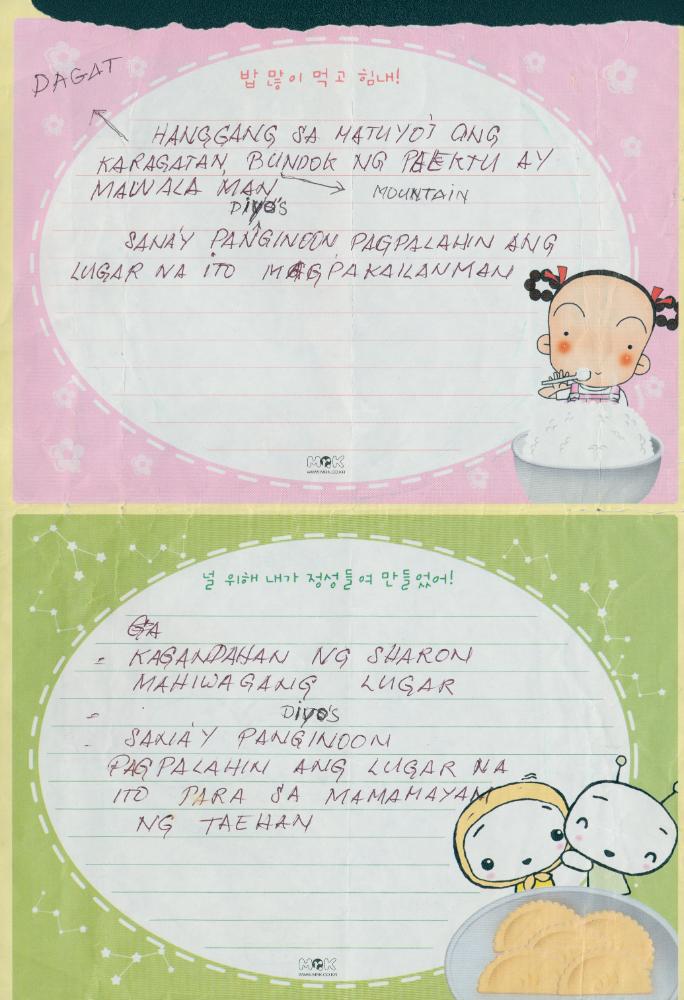 DAGAT
밥 많이 먹고 힘내!
HANGGANG SA MATUYO'T ANG
KARAGATAN, BUNDOK NG PAEKTU AY
MAWALA MAN
MOUNTAIN
DIYO'S
SANA'Y PANGINOON PAGPALAHIN ANG
LUGAR NA ITO MAGPAKAILANMAN
MRK
WWW.MRK.CO.KR
널 위해 내가 정성들여 만들었어!
GA
- KAGANDAHAN NG SHARON
MAHIWAGANG LUGAR
-
DIYO'S
- SANA'Y PANGINOON
PAGPALAHIN ANG LUGAR NA
ITO PARA SA MAMAMAYAN
NG TAEHAN
MRK
WWW.MRK.CO.KR